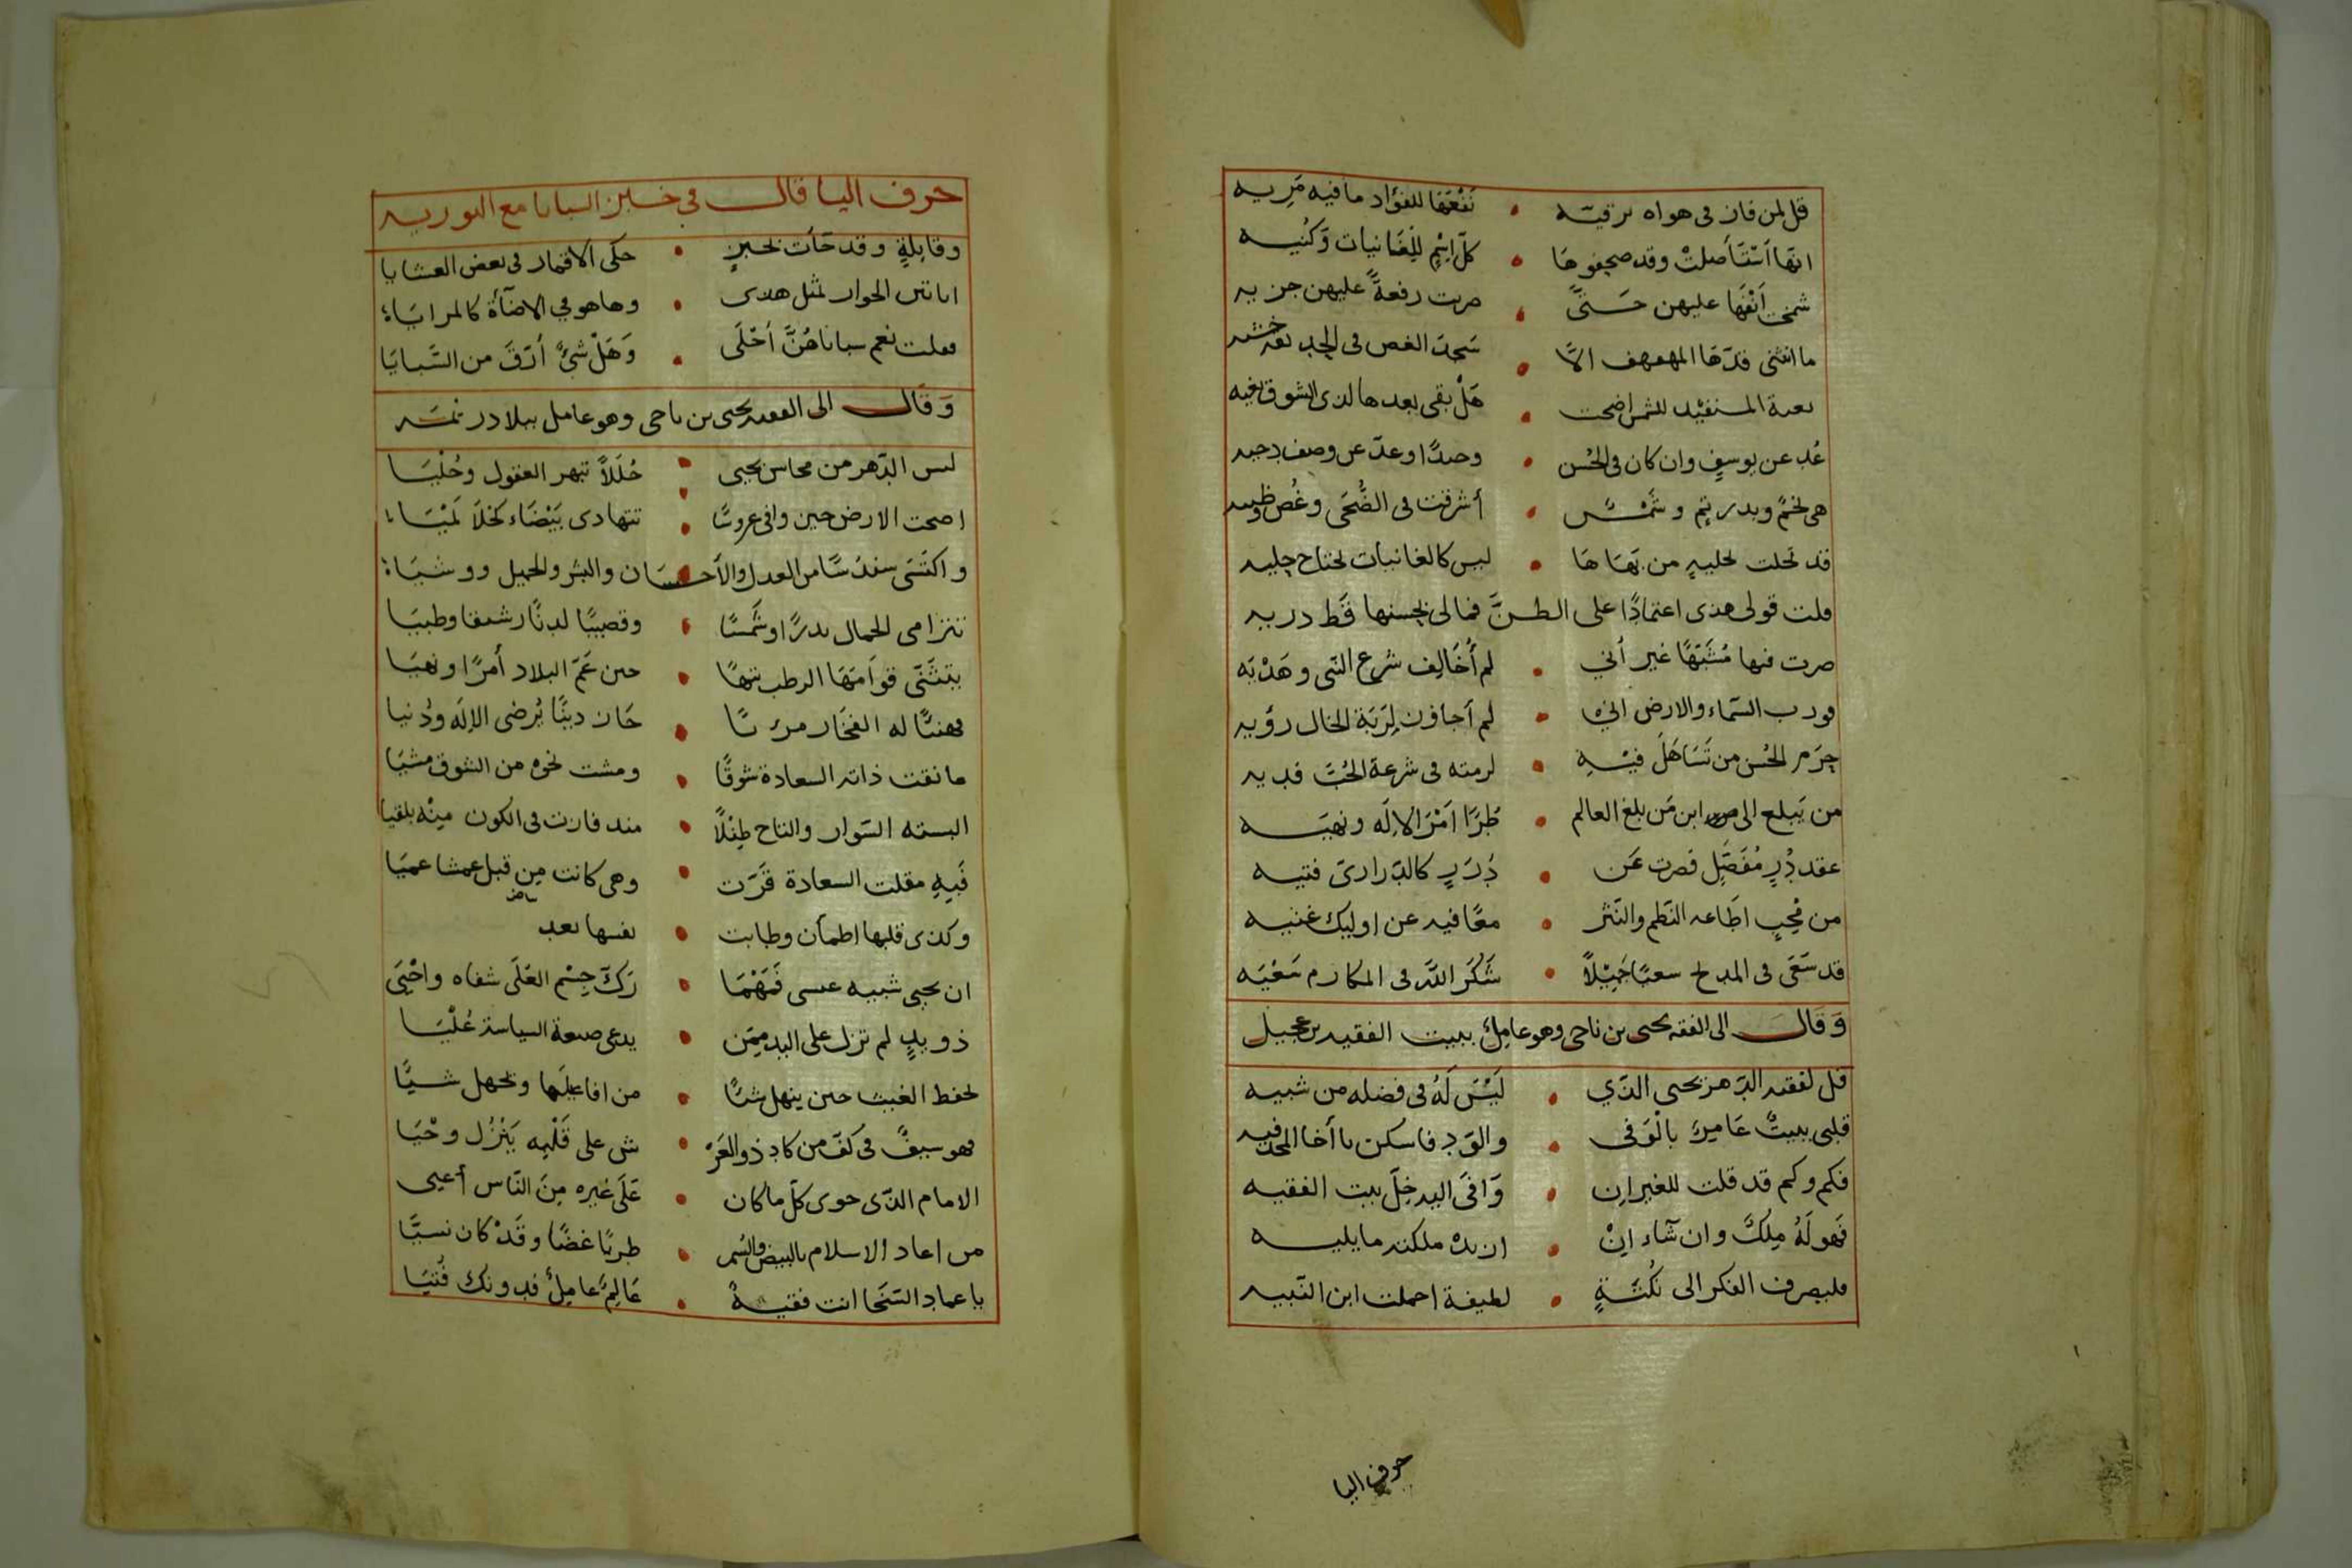 قل لمن فاز فى هواه برقيّه • نَفْعَهَا للفؤاد ما فيه مَرِيه
انهَا اَسْتَأصلتْ وقد صحفوهَا • كلّ اسْمٍ لِلغَانيات وَكُنيه
شمخت اَنْفَهَا عليهن حسَنَىً • مرت رفعةً عليهن جزيه
ما انثنى قدّهَا المهفهف الاّ • سَجدَ الغصن فى
للشمس اضحت • هَلْ بقى بعدها لذى الشوق بغيه
عُد عن يوسفٍ وان كان فى الحُسن • وحيدًا وعدّ عن وصف دحيه
هى نجمٌ وبدر تم وشَمْسٌ • أشرقت فى الضُّحَى وغُصن وظبيه
قد تحلت بحليةٍ من بهَاهَا • ليس كالغانيات تحتاج حليه
قلت قولى هذى اعتمادًا على الظنَّ فمالى بحسنها قَط دريه
صرت فيها مُنَبّهًا غير أني • لم أُخَالِف شرع النبى وهَدْيَه
فورب السّماء والارض انى • لم أجاوز لِرَبّة الخال رؤيه
حِرَم الحُسن من تَسَاهَلَ فيْهِ • لزمته فى شرعة الحُبّ فديه
من يَبلغ الى ابن مَن بلغ العالم • طُرًّا اَمْرَ الاِلَه ونهيَه
عقد دُرٍ مُفَصَّلٍ قصرت عَن • دُرَرٍ كالدّرارىّ فتيه
من مُحبٍ اطَاعه النَظم والنّثر • معًا فيه عن اوليك غنيه
قد سَعَى فى المدح سعيًا جَمِيْلاً • شَكَرَ اللهَ فى المكارم سَعْيَه
وَقَالَ الى الفقه يحيى بن ناجى وهو عامِلٌ ببيت الفقيه بن عجيل
قل لفقيه الدّهر يحيى الذّي • لَيْسَ لَهُ فى فضله من شبيه
قلبى ببيتٌ عَامرٌ بالْوَفى • والوَدِ فاسكن يا أخا المجد فيه
فكم وكم قد قلت للغير ان • وَافَى اليه خِلّ بيت الفقيه
فَهو لَهُ مِلكٌ وان شَآء انْ • ان يده ملكته ما يليه
فليصرف الفكر الى نُكتَةٍ • لطيفة احملت ابن النّبيه
حرف اليا
حرف اليا قال فى خبز السبايا مع البوريه
وقايلةٍ وقد جَأت بخبزٍ • حكَى الاقمار فى بعض العشايا
اتاتى الحوار بمثل هذى • وها هو فى الاضآة كالمرايَا
فقلت نعم سبايا هُنَّ أَحْلَى • وَهَلْ شئٌ أرَقّ من السَّبايَا
وَقَال الى الفقيه يحيى بن ناجى وهو عامل ببلاد ريمَه
لبس الدّهر من محاسن يحيى • حُلَلاً تبهر العقول وحُلْيَا
اصحت الارض حين وافى عروسًا • تتهادى بَيْضَاء كَحْلاَ لَمْيَا
واكتسَى سندسًا من العدل والأحسَان والبشر والجميل ووشيَا
تتزامى الجمال بدرًا وشَمسًا • وقضيبًا لدنًا رشيقا وظبيَا
يتثَنّى قوَامَهَا الرطب تيهًا • حين عَمّ البلاد أمرًا ونهيَا
فهنيًا له الفَخَار • حَان دينًا يُرضى الاِلَه ودُنيا
عانقت ذاته السعادة شوقًا • ومشت نحوه من الشوق مشيَا
البسته السّوار والتاج طِفْلاً • منذ فازت فى الكون مِنْه بلقيَا
فَبِهِ مقلت السعادة قَرّت • وهى كانت مِن قبل عمشا عميَا
وكذى قلبها اطمأن وطابت • نفسها بعد
ان يحيى شبيه عيسى فَمَهْمَا • رَكّ جِسْم العُلَى شفاه واحْيَى
ذو يدٍ لم تزل على • يدعى صنعة السياسة عُلْيَا
لحفظ الغيث حين ينهل شيًا • من افاعيلها ويجهل شيّا
فهو سيفٌ فى كفّ من كاد ذو العَرْ • ش على قَلْبِه يَنْزُل وحْيَا
الامام الذّى حوى كلّ ما كان • عَلَى غيره مِنَ النّاس أعيى
من اعاد الاسلام بالبيض والسُمر • طريًا غضًا وقَدْ كان نسيًّا
يا عماد السّخَا انت فقيهٌ • عَالِمٌ عامِلٌ فدونك فُتيَا